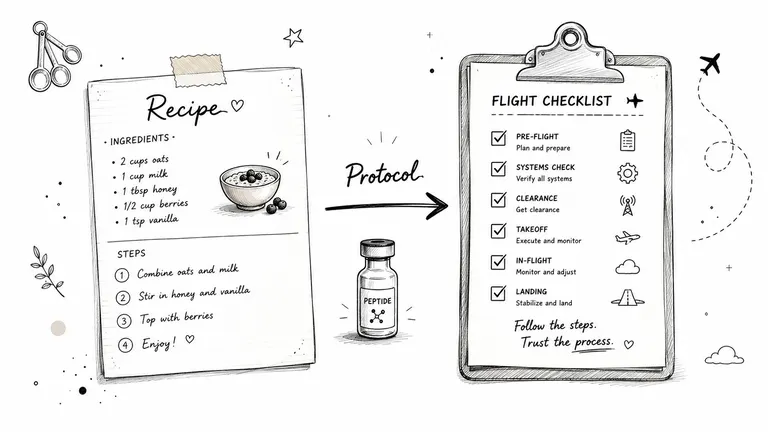 Recipe
• INGREDIENTS •
• 2 cups oats
• 1 cup milk
• 1 tbsp honey
• 1/2 cup berries
• 1 tsp vanilla
STEPS
1 Combine oats and milk
2 Stir in honey and vanilla
3 Top with berries
4 Enjoy!
Protocol
PEPTIDE
FLIGHT CHECKLIST
PRE-FLIGHT
Plan and prepare
SYSTEMS CHECK
Verify all systems
CLEARANCE
Get clearance
TAKEOFF
Execute and monitor
IN-FLIGHT
Monitor and adjust
LANDING
Stabilize and land
Follow the steps.
Trust the process.